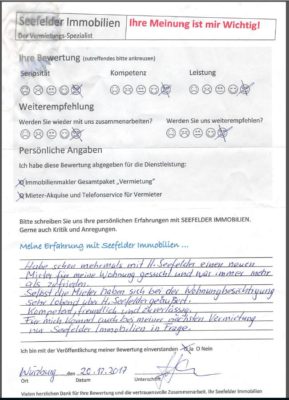 Seefelder Immobilien
Der Vermietungs-Spezialist
Ihre Meinung ist mir Wichtig!
Ihre Bewertung (zutreffendes bitte ankreuzen)
Seriosität Kompetenz Leistung
Weiterempfehlung
Würden Sie wieder mit uns zusammenarbeiten? Würden Sie uns weiterempfehlen?
Persönliche Angaben
Ich habe diese Bewertung abgegeben für die Dienstleistung:
Immobilienmakler Gesamtpaket „Vermietung"
Mieter-Akquise und Telefonservice für Vermieter
Bitte schreiben Sie uns Ihre persönlichen Erfahrungen mit SEEFELDER IMMOBILIEN.
Gerne auch Kritik und Anregungen.
Meine Erfahrung mit Seefelder Immobilien ...
Habe schon mehrmals mit H. Seefelder einen neuen
Mieter für meine Wohnung gesucht und war immer mehr
als zufrieden.
Selbst die Mieter haben sich bei der Wohnungsbesichtigung
sehr lobend über H. Seefelder geäußert.
Kompetent, freundlich und zuverlässig.
Für mich kommt auch bei meiner nächsten Vermietung
nur Seefelder Immobilien in Frage.
Ich bin mit der Veröffentlichung meiner Bewertung einverstanden Ja O Nein
Würzburg den 20.12.2017
Ort Datum Unterschrift
Vielen herzlichen Dank für Ihre Bewertung und die vertrauensvolle Zusammenarbeit. Ihr Seefelder Immobilien